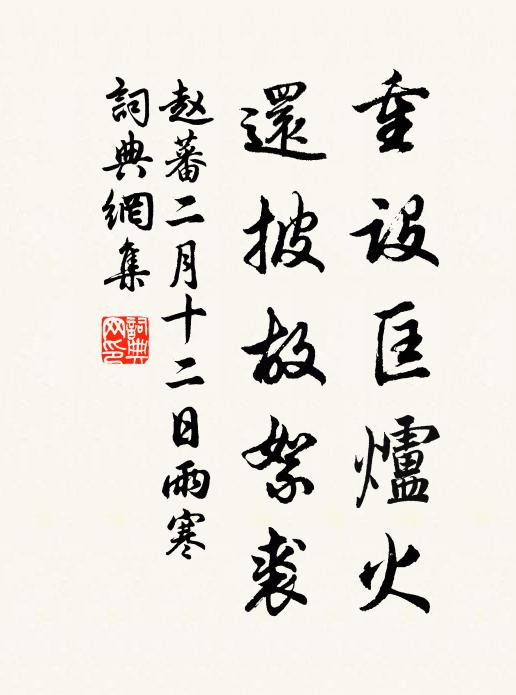 重設匡爐火
還披故絮裘
赵蕃二月十二日雨寒
詞典網集
詞典网印